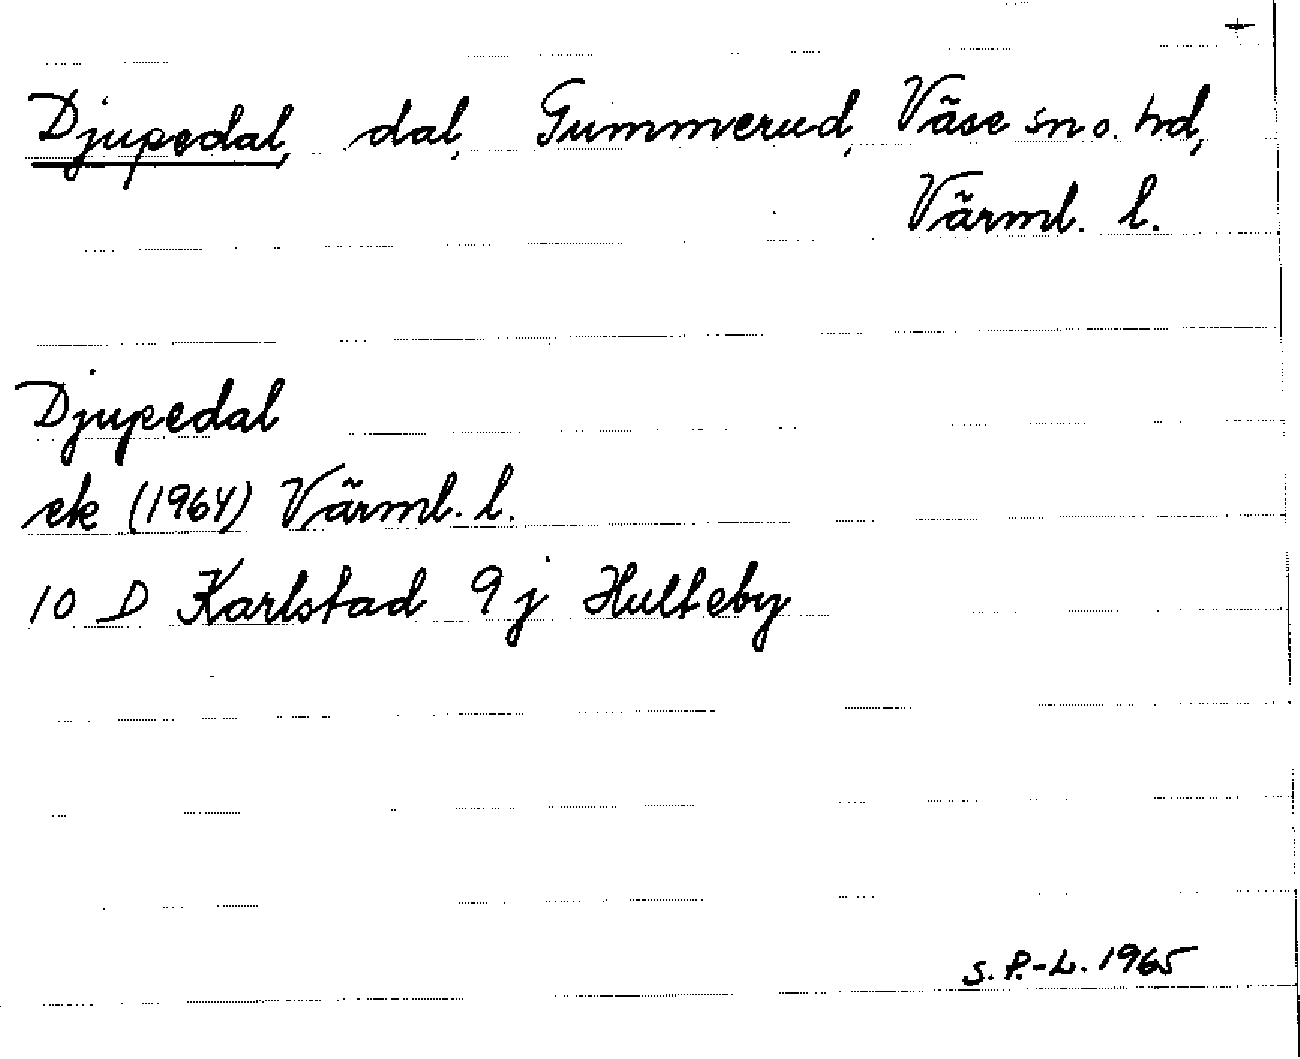 Djupedal, dal, Gummerud, Väse sn o. hd,
Värml. l.
Djupedal
ek (1964) Värml. l.
10 D Karlstad 9 j Hulteby
S. P.-L. 1965